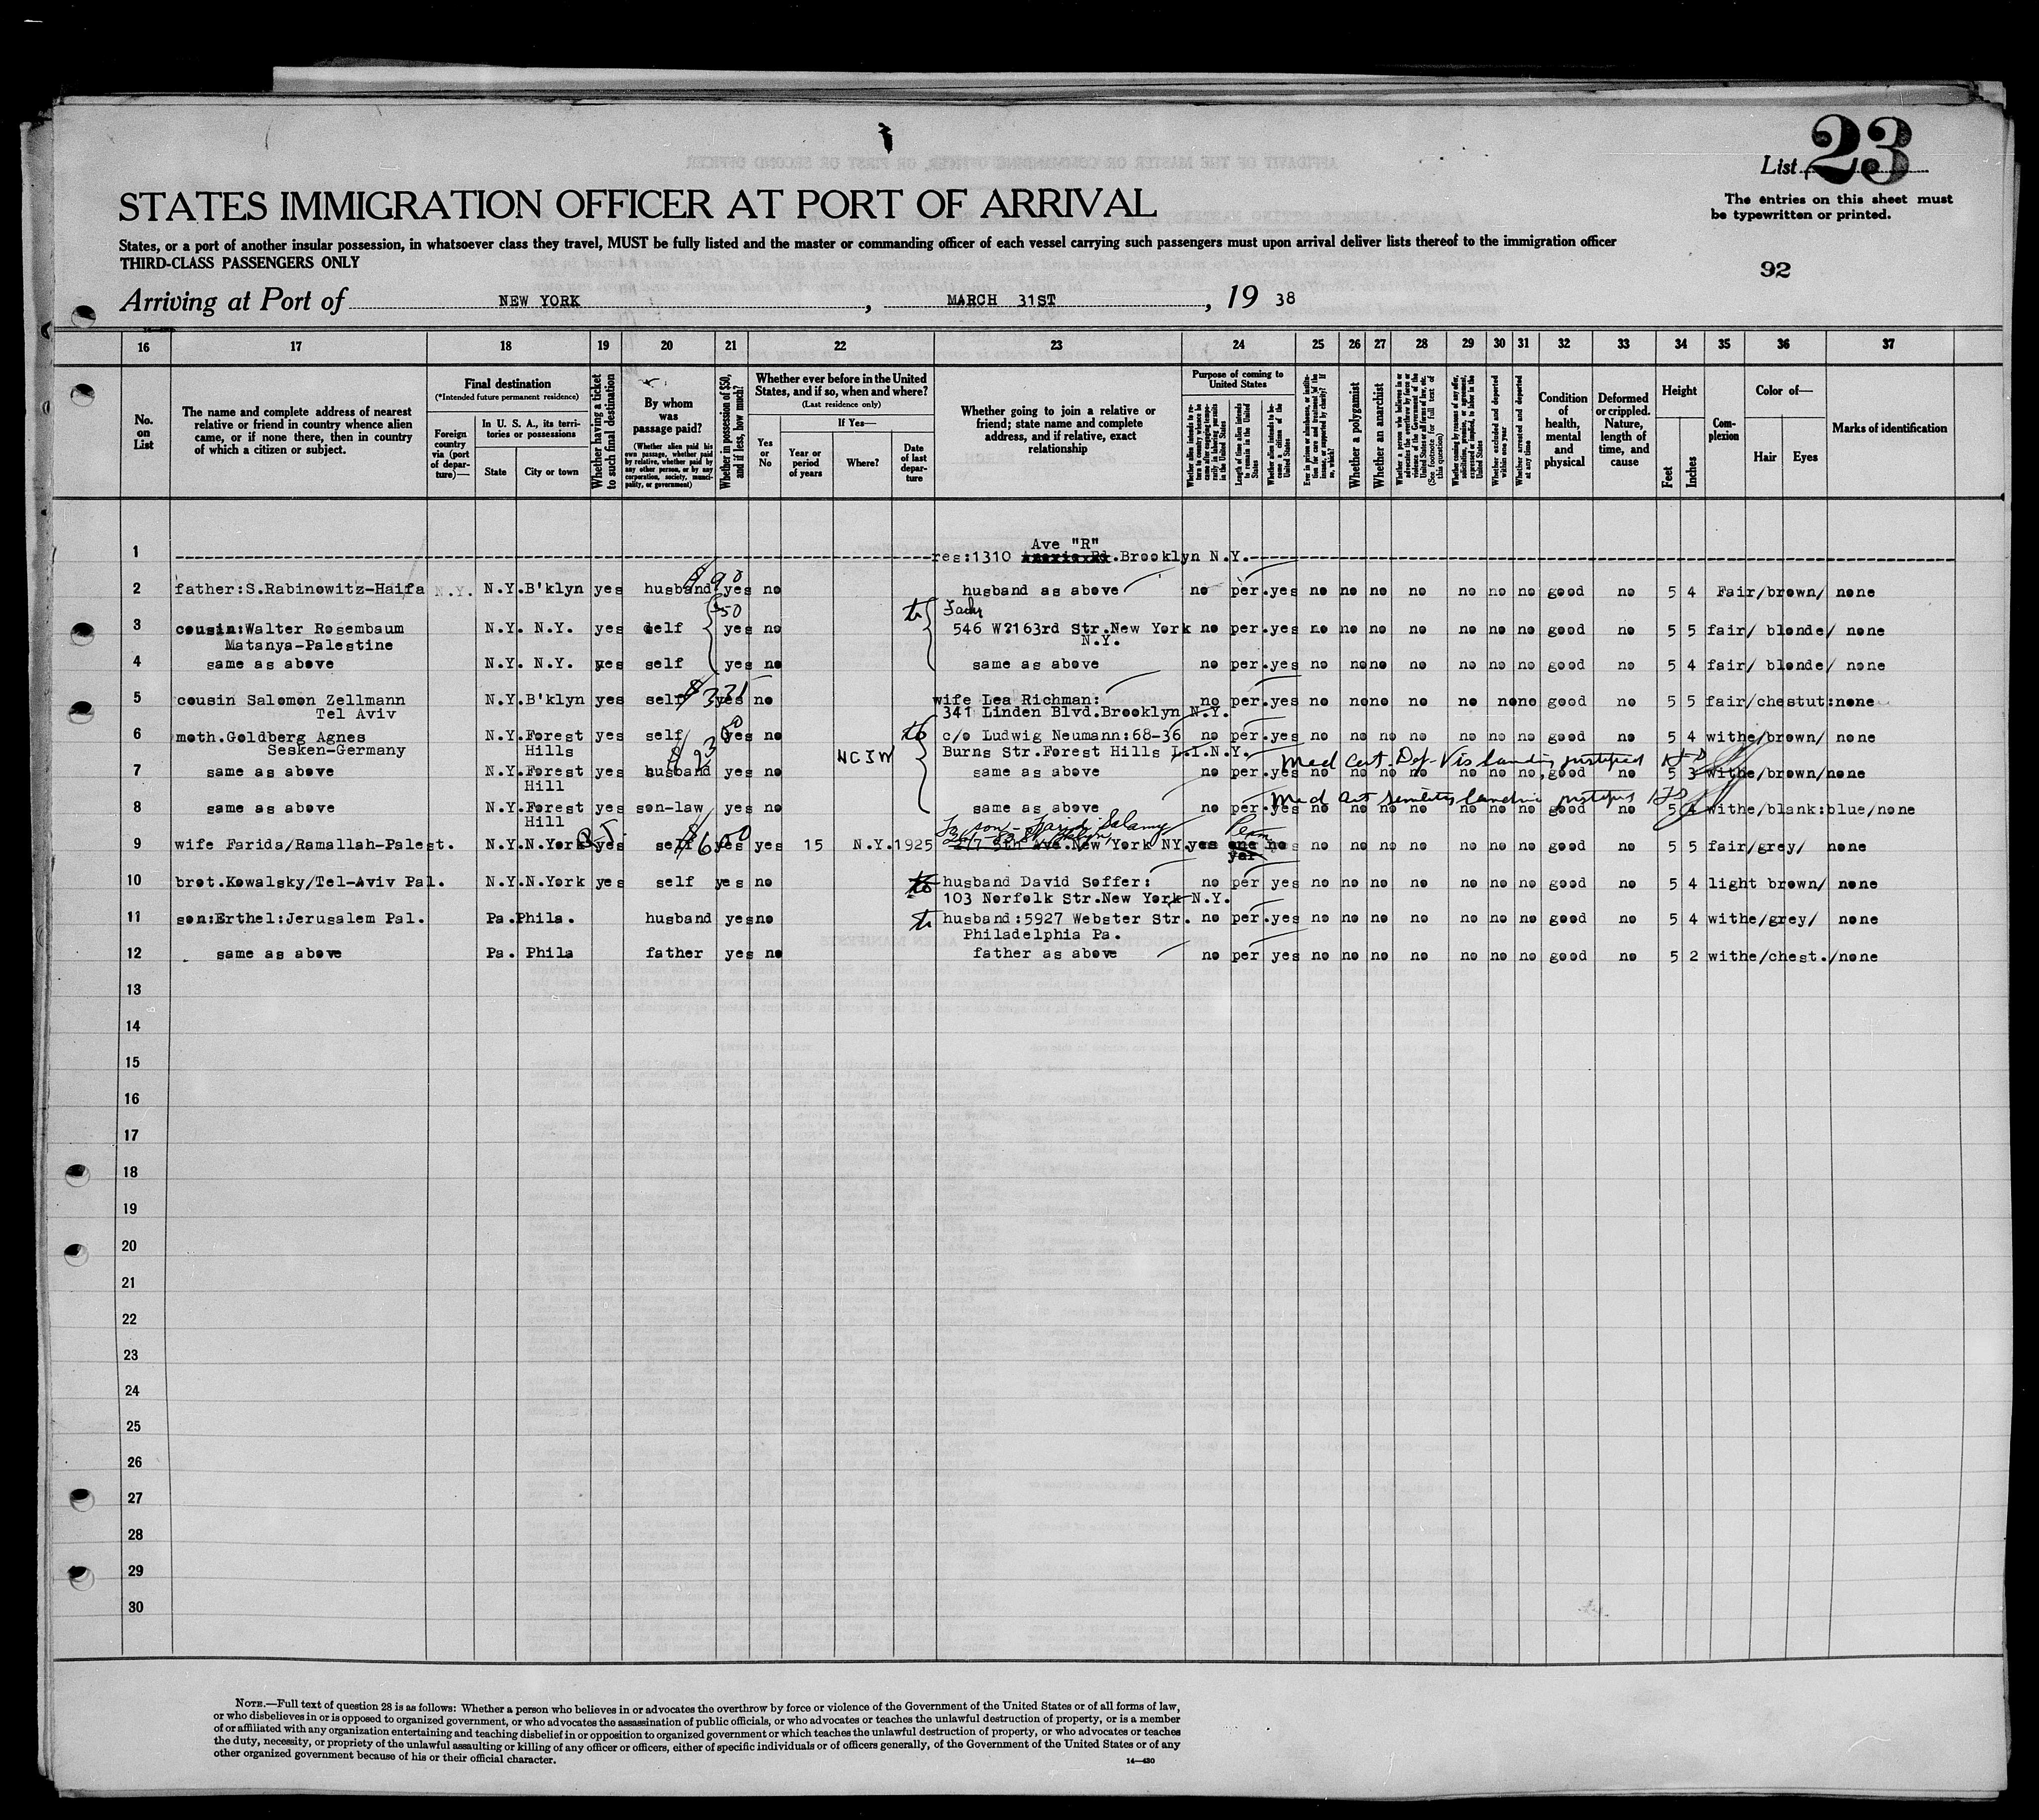 List 23
The entries on this sheet must
be typewritten or printed.
STATES IMMIGRATION OFFICER AT PORT OF ARRIVAL
States, or a port of another insular possession, in whatsoever class they travel, MUST be fully listed and the master or commanding officer of each vessel carrying such passengers must upon arrival deliver lists thereof to the immigration officer
THIRD-CLASS PASSENGERS ONLY
92
Arriving at Port of NEW YORK, MARCH 31ST, 19 38
16 17 18 19 20 21 22 23 24 25 26 27 28 29 30 31 32 33 34 35 36 37
No.
on
List
The name and complete address of nearest
relative or friend in country whence alien
came, or if none there, then in country
of which a citizen or subject.
Final destination
(*Intended future permanent residence)
Foreign
country
via (port
of depar-
ture)—
In U. S. A., its terri-
tories or possessions
State
City or town
Whether having a ticket
to such final destination
By whom
was
passage paid?
(Whether alien paid his
own passage, whether paid
by relative, whether paid by
any other person, or by any
corporation, society, munici-
pality, or government)
Whether in possession of $50,
and if less, how much?
Whether ever before in the United
States, and if so, when and where?
(Last residence only)
Yes
or
No
If Yes—
Year or
period
of years
Where?
Date
of last
depar-
ture
Whether going to join a relative or
friend; state name and complete
address, and if relative, exact
relationship
Purpose of coming to
United States
Whether alien intends to re-
turn to country whence he
came after engaging tempo-
rarily in laboring pursuits
in the United States
Length of time alien intends
to remain in the United
States
Whether alien intends to be-
come a citizen of the
United States
Ever in prison or almshouse, or institu-
tion for care and treatment of the
insane, or supported by charity? If
so, which?
Whether a polygamist
Whether an anarchist
Whether a person who believes in or
advocates the overthrow by force or
violence of the Government of the
United States or all forms of law, etc.
(See footnote for full text of
this question)
Whether coming by reason of any offer,
solicitation, promise, or agreement,
expressed or implied, to labor in the
United States
Whether excluded and deported
within one year
Whether arrested and deported
at any time
Condition
of
health,
mental
and
physical
Deformed
or crippled.
Nature,
length of
time, and
cause
Height
Feet
Inches
Com-
plexion
Color of—
Hair
Eyes
Marks of identification
Ave "R"
1 res:1310 Brooklyn N.Y.
2 father:S.Rabinowitz-Haifa N.Y. N.Y. B'klyn yes husband yes no husband as above no per. yes no no no no no no no good no 5 4 Fair/brown/ none
$50
3 cousin:Walter Rosembaum N.Y. N.Y. yes self yes no 546 W?163rd Str.New York no per. yes no no no no no no no good no 5 5 fair/ blonde/ none
Matanya-Palestine N.Y.
4 same as above N.Y. N.Y. yes self yes no same as above no per. yes no no no no no no no good no 5 4 fair/ blonde/ none
5 cousin Salomon Zellmann N.Y. B'klyn yes self yes no wife Lea Richman: no per. yes no no no no no no no good no 5 5 fair/chestut:none
Tel Aviv 341 Linden Blvd.Brooklyn N.Y.
6 moth.Goldberg Agnes N.Y. Forest yes self yes no to c/o Ludwig Neumann:68-36 no per. yes no no no no no no no good no 5 4 withe/brown/ none
Sesken-Germany Hills NCJW Burns Str.Forest Hills L.I.N.Y.
Med cert. Def. Vis landing justified
7 same as above N.Y. Forest yes husband yes no same as above no per. yes no no no no no no no good no 5 3 withe/brown/none
Hill
Med cert senility landing justified
8 same as above N.Y. Forest yes son-law yes no same as above no per. yes no no no no no no no good no 5 4 withe/blank:blue/none
Hill
To son - Farid Salamy
9 wife Farida/Ramallah-Palest. N.Y. N.York yes self yes yes 15 N.Y. 1925 5th Ave.New York NY. yes one no no no no no no no no good no 5 5 fair/grey/ none
year
Perm
10 brot.Kowalsky/Tel-Aviv Pal. N.Y. N.York yes self yes no to husband David Soffer: no per yes no no no no no no no good no 5 4 light brown/ none
103 Norfolk Str.New York N.Y.
11 son:Erthel:Jerusalem Pal. Pa. Phila. husband yes no to husband:5927 Webster Str. no per. yes no no no no no no no good no 5 4 withe/grey/ none
Philadelphia Pa.
12 same as above Pa. Phila father yes no father as above no per yes no no no no no no no good no 5 2 withe/chest./none
13
14
15
16
17
18
19
20
21
22
23
24
25
26
27
28
29
30
NOTE.—Full text of question 28 is as follows: Whether a person who believes in or advocates the overthrow by force or violence of the Government of the United States or of all forms of law,
or who disbelieves in or is opposed to organized government, or who advocates the assassination of public officials, or who advocates or teaches the unlawful destruction of property, or is a member
of or affiliated with any organization entertaining and teaching disbelief in or opposition to organized government or which teaches the unlawful destruction of property, or who advocates or teaches
the duty, necessity, or propriety of the unlawful assaulting or killing of any officer or officers, either of specific individuals or of officers generally, of the Government of the United States or of any
other organized government because of his or their official character.
14—430